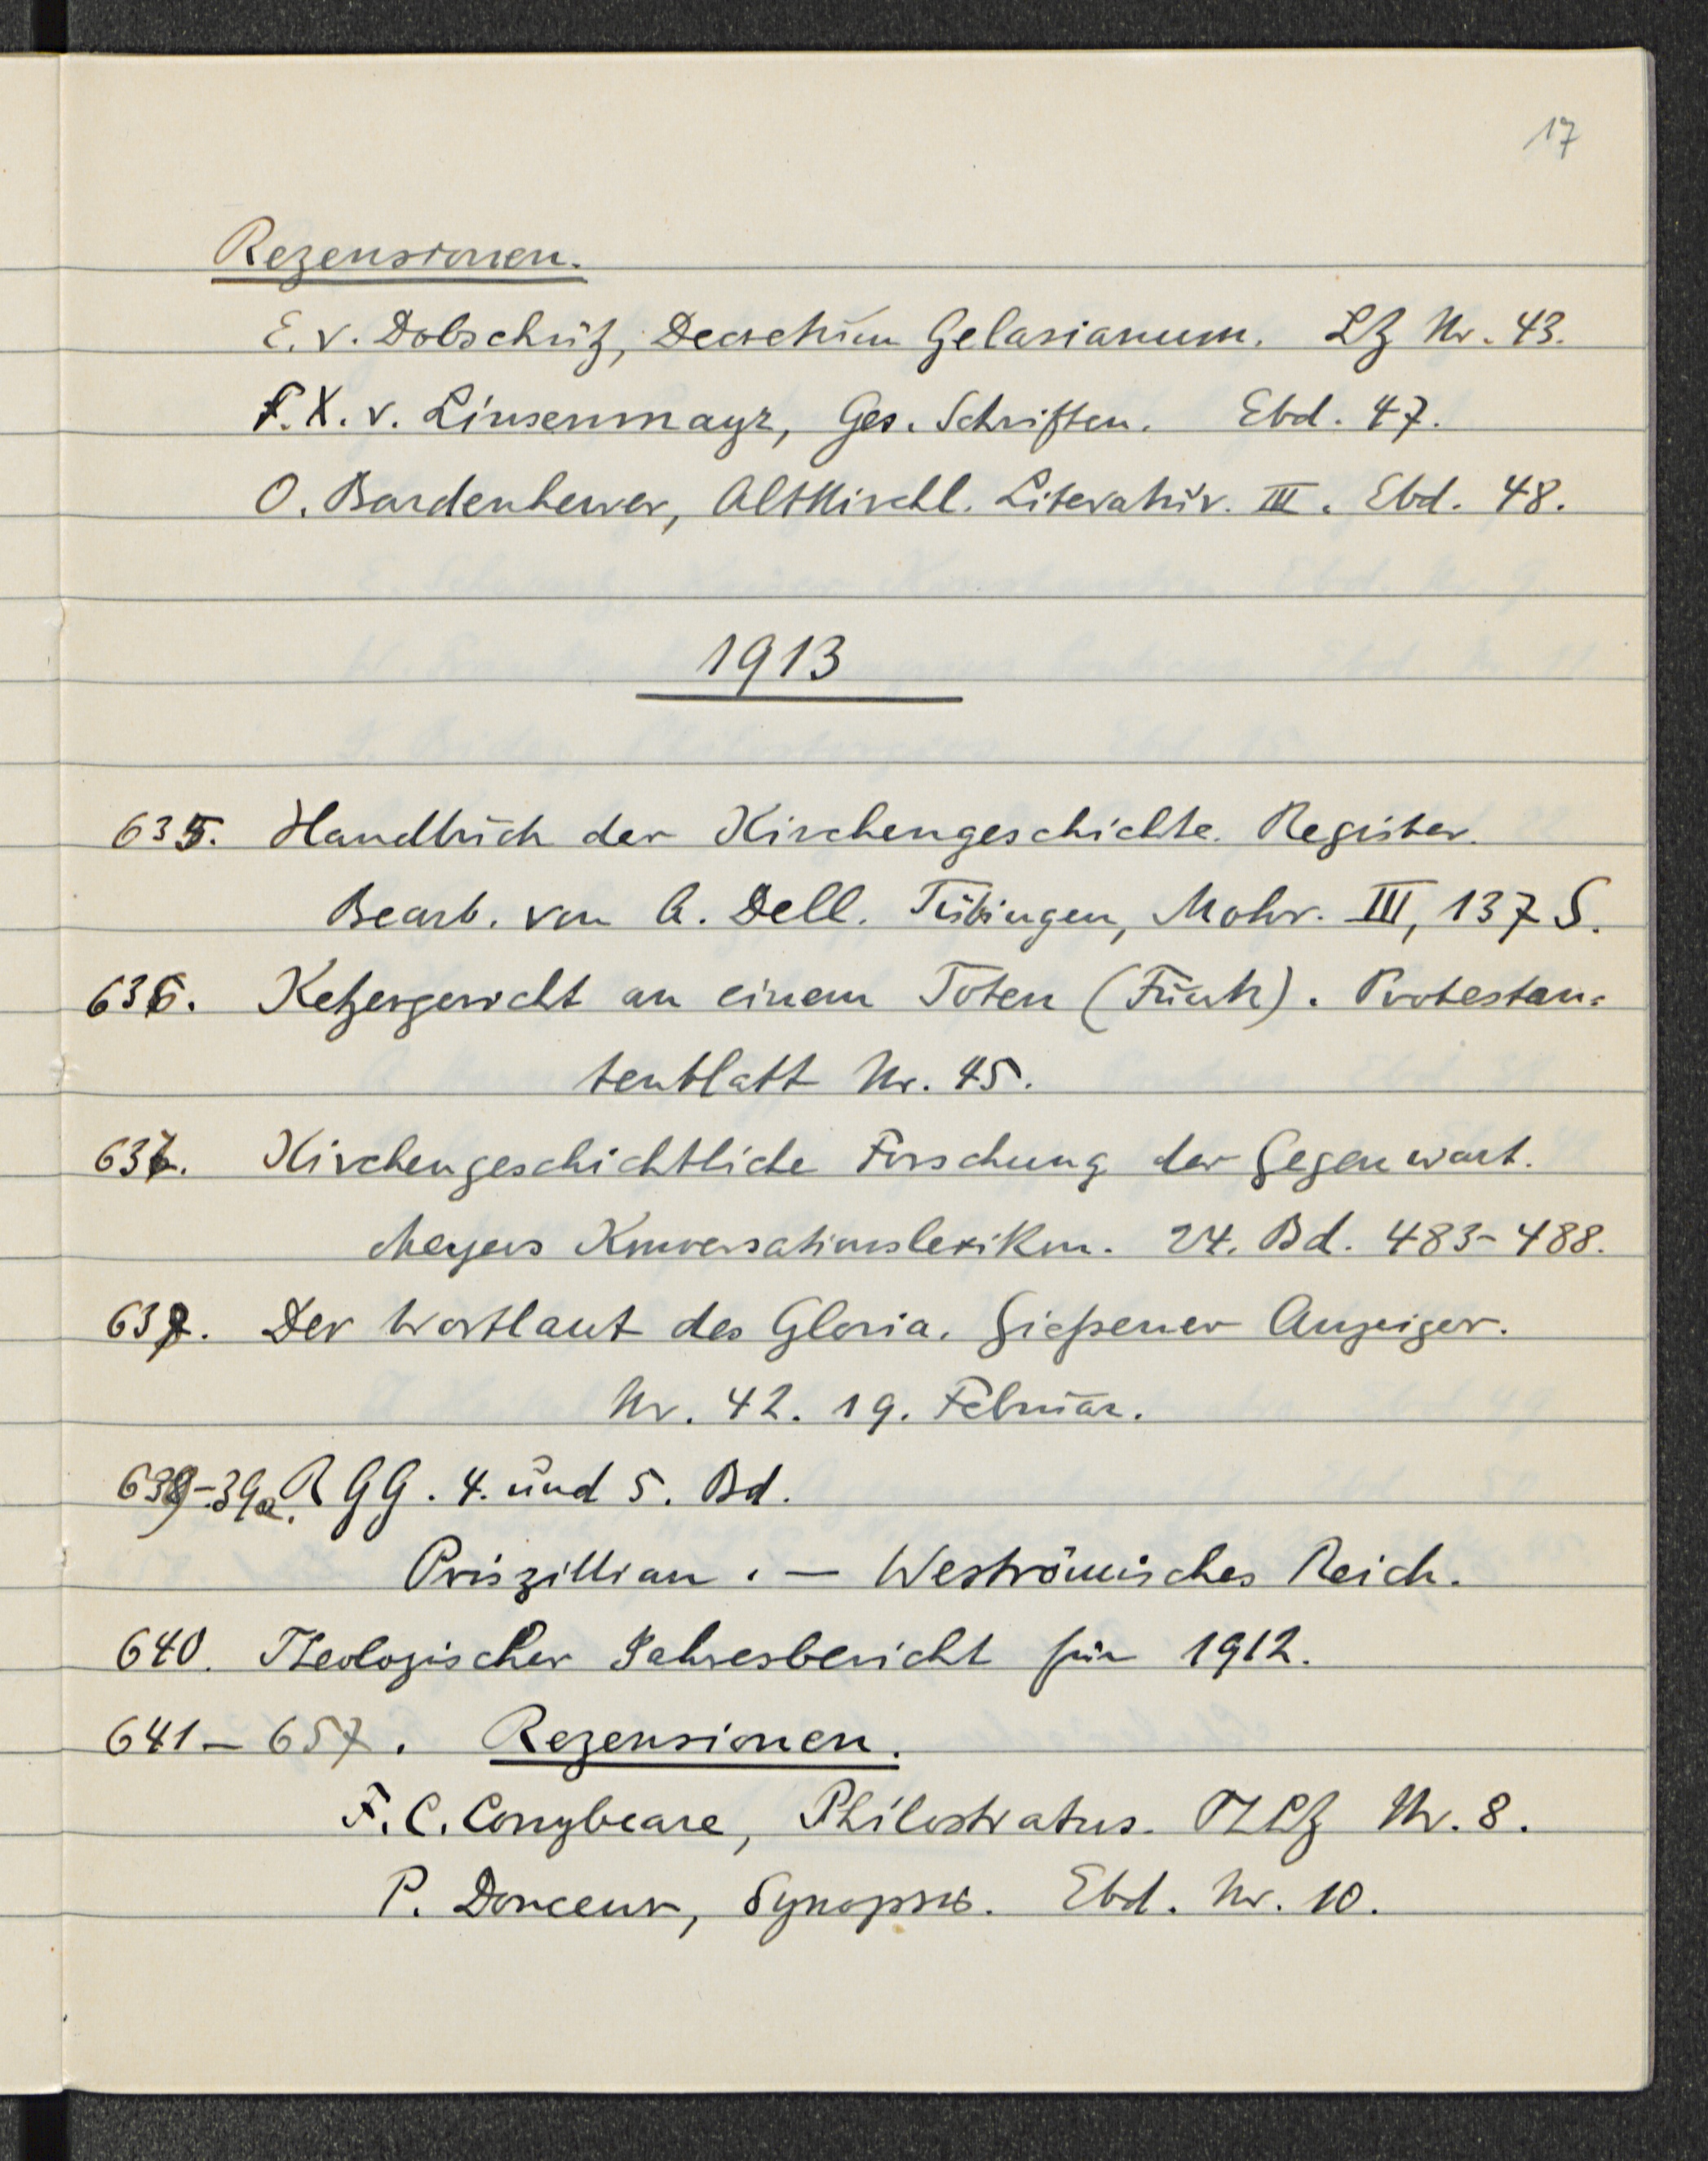 17
Rezensionen.
E. v. Dobschütz, Decretum Gelasianum. LZ Nr. 43.
F. X. v. Linsenmayr, Ges. Schriften. Ebd. 47.
O. Bardenhewer, Altkirchl. Literatur. III. Ebd. 48.
1913
635. Handbuch der Kirchengeschichte. Register.
Bearb. von A. Dell. Tübingen, Mohr. III, 137 S.
636. Ketzergericht an einem Toten (Funk). Protestan=
tenblatt Nr. 45.
637. Kirchengeschichtliche Forschung der Gegenwart.
Meyers Konversationslexikon. 24. Bd. 483-488.
638. Der Wortlaut des Gloria. Gießener Anzeiger.
Nr. 42. 19. Februar.
639-39a. RGG. 4. und 5. Bd.
Priszillian. — Weströmisches Reich.
640. Theologischer Jahresbericht für 1912.
641-657. Rezensionen.
F. C. Conybeare, Philostratus. ThLZ Nr. 8.
P. Donceur, Synopsis. Ebd. Nr. 10.